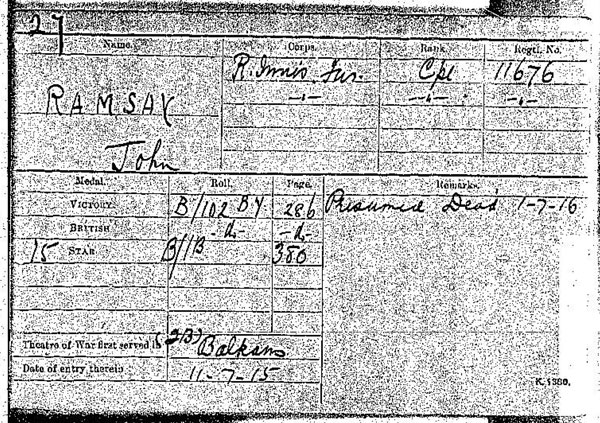 27
Name. Corps. Rank. Regtl. No.
R. Innis Fus. Cpl 11676
RAMSAY -"- -"- -"-
John
Medal. Roll. Page. Remarks.
VICTORY. B/102 B4 286 Presumed Dead 1-7-16
BRITISH -do- -do-
15 STAR B/1B 380
Theatre of War first served in (2B) Balkans
Date of entry therein 11-7-15
K. 1380.